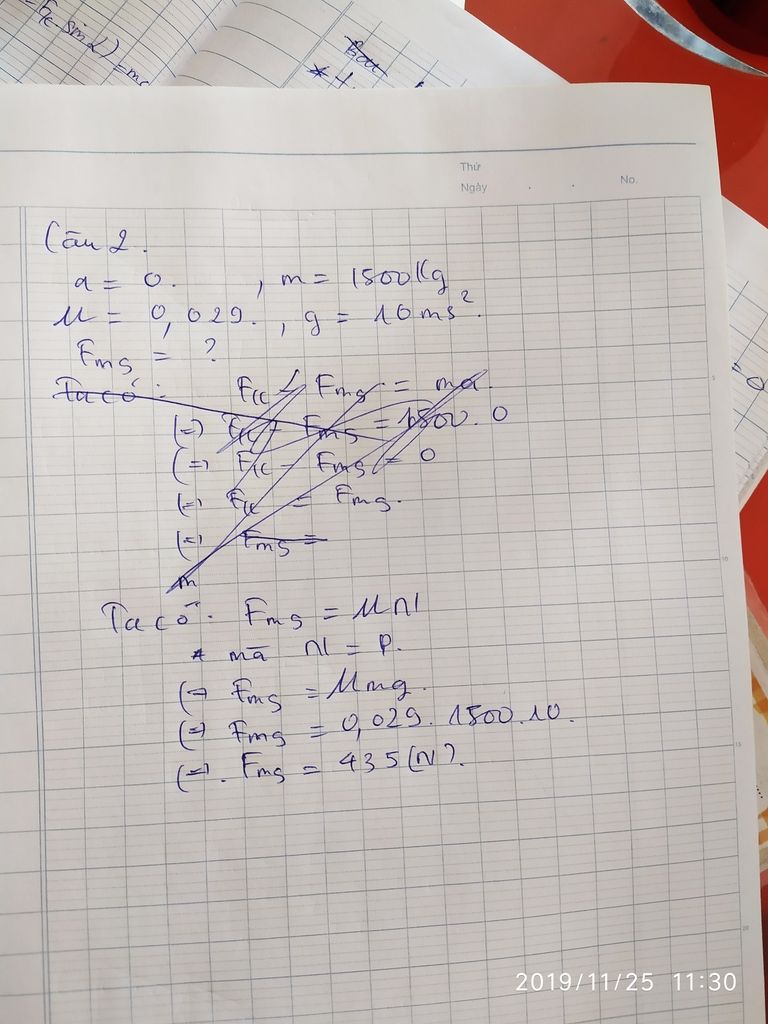 Fk sin α) = ma
Thứ
Ngày . . No.
Câu 2.
a = 0. , m = 1500 Kg
μ = 0,029. , g = 10 ms².
Fms = ?
Ta có: Fk - Fms = ma.
(=) Fk - Fms = 1500. 0
(=) Fk - Fms = 0
(=) Fk = Fms.
(=) Fms =
m
Ta có: Fms = μN
* mà N = P.
(=) Fms = μmg.
(=) Fms = 0,029. 1500.10.
(=). Fms = 435 (N).
5
10
15
20
2019/11/25 11:30